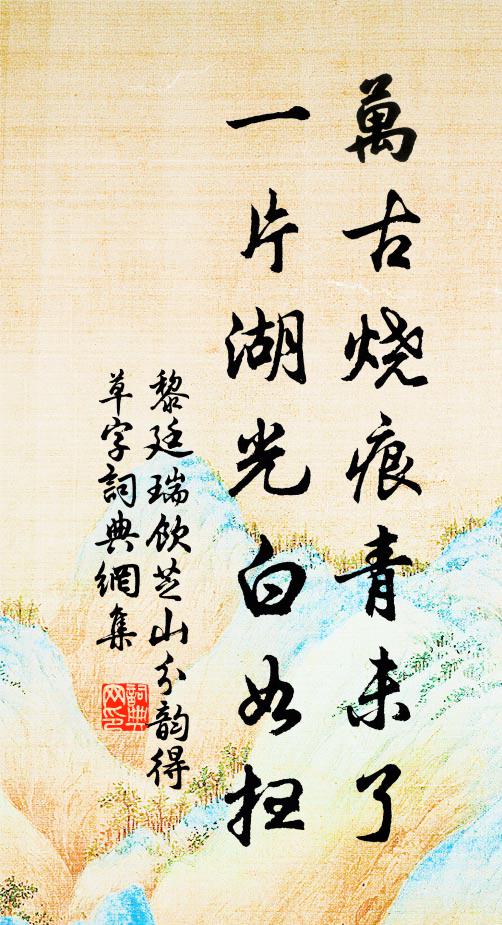 萬古烧痕青未了
一片湖光白如扫
黎廷瑞飲芝山分韵得
草字詞典網集
詞典
网印